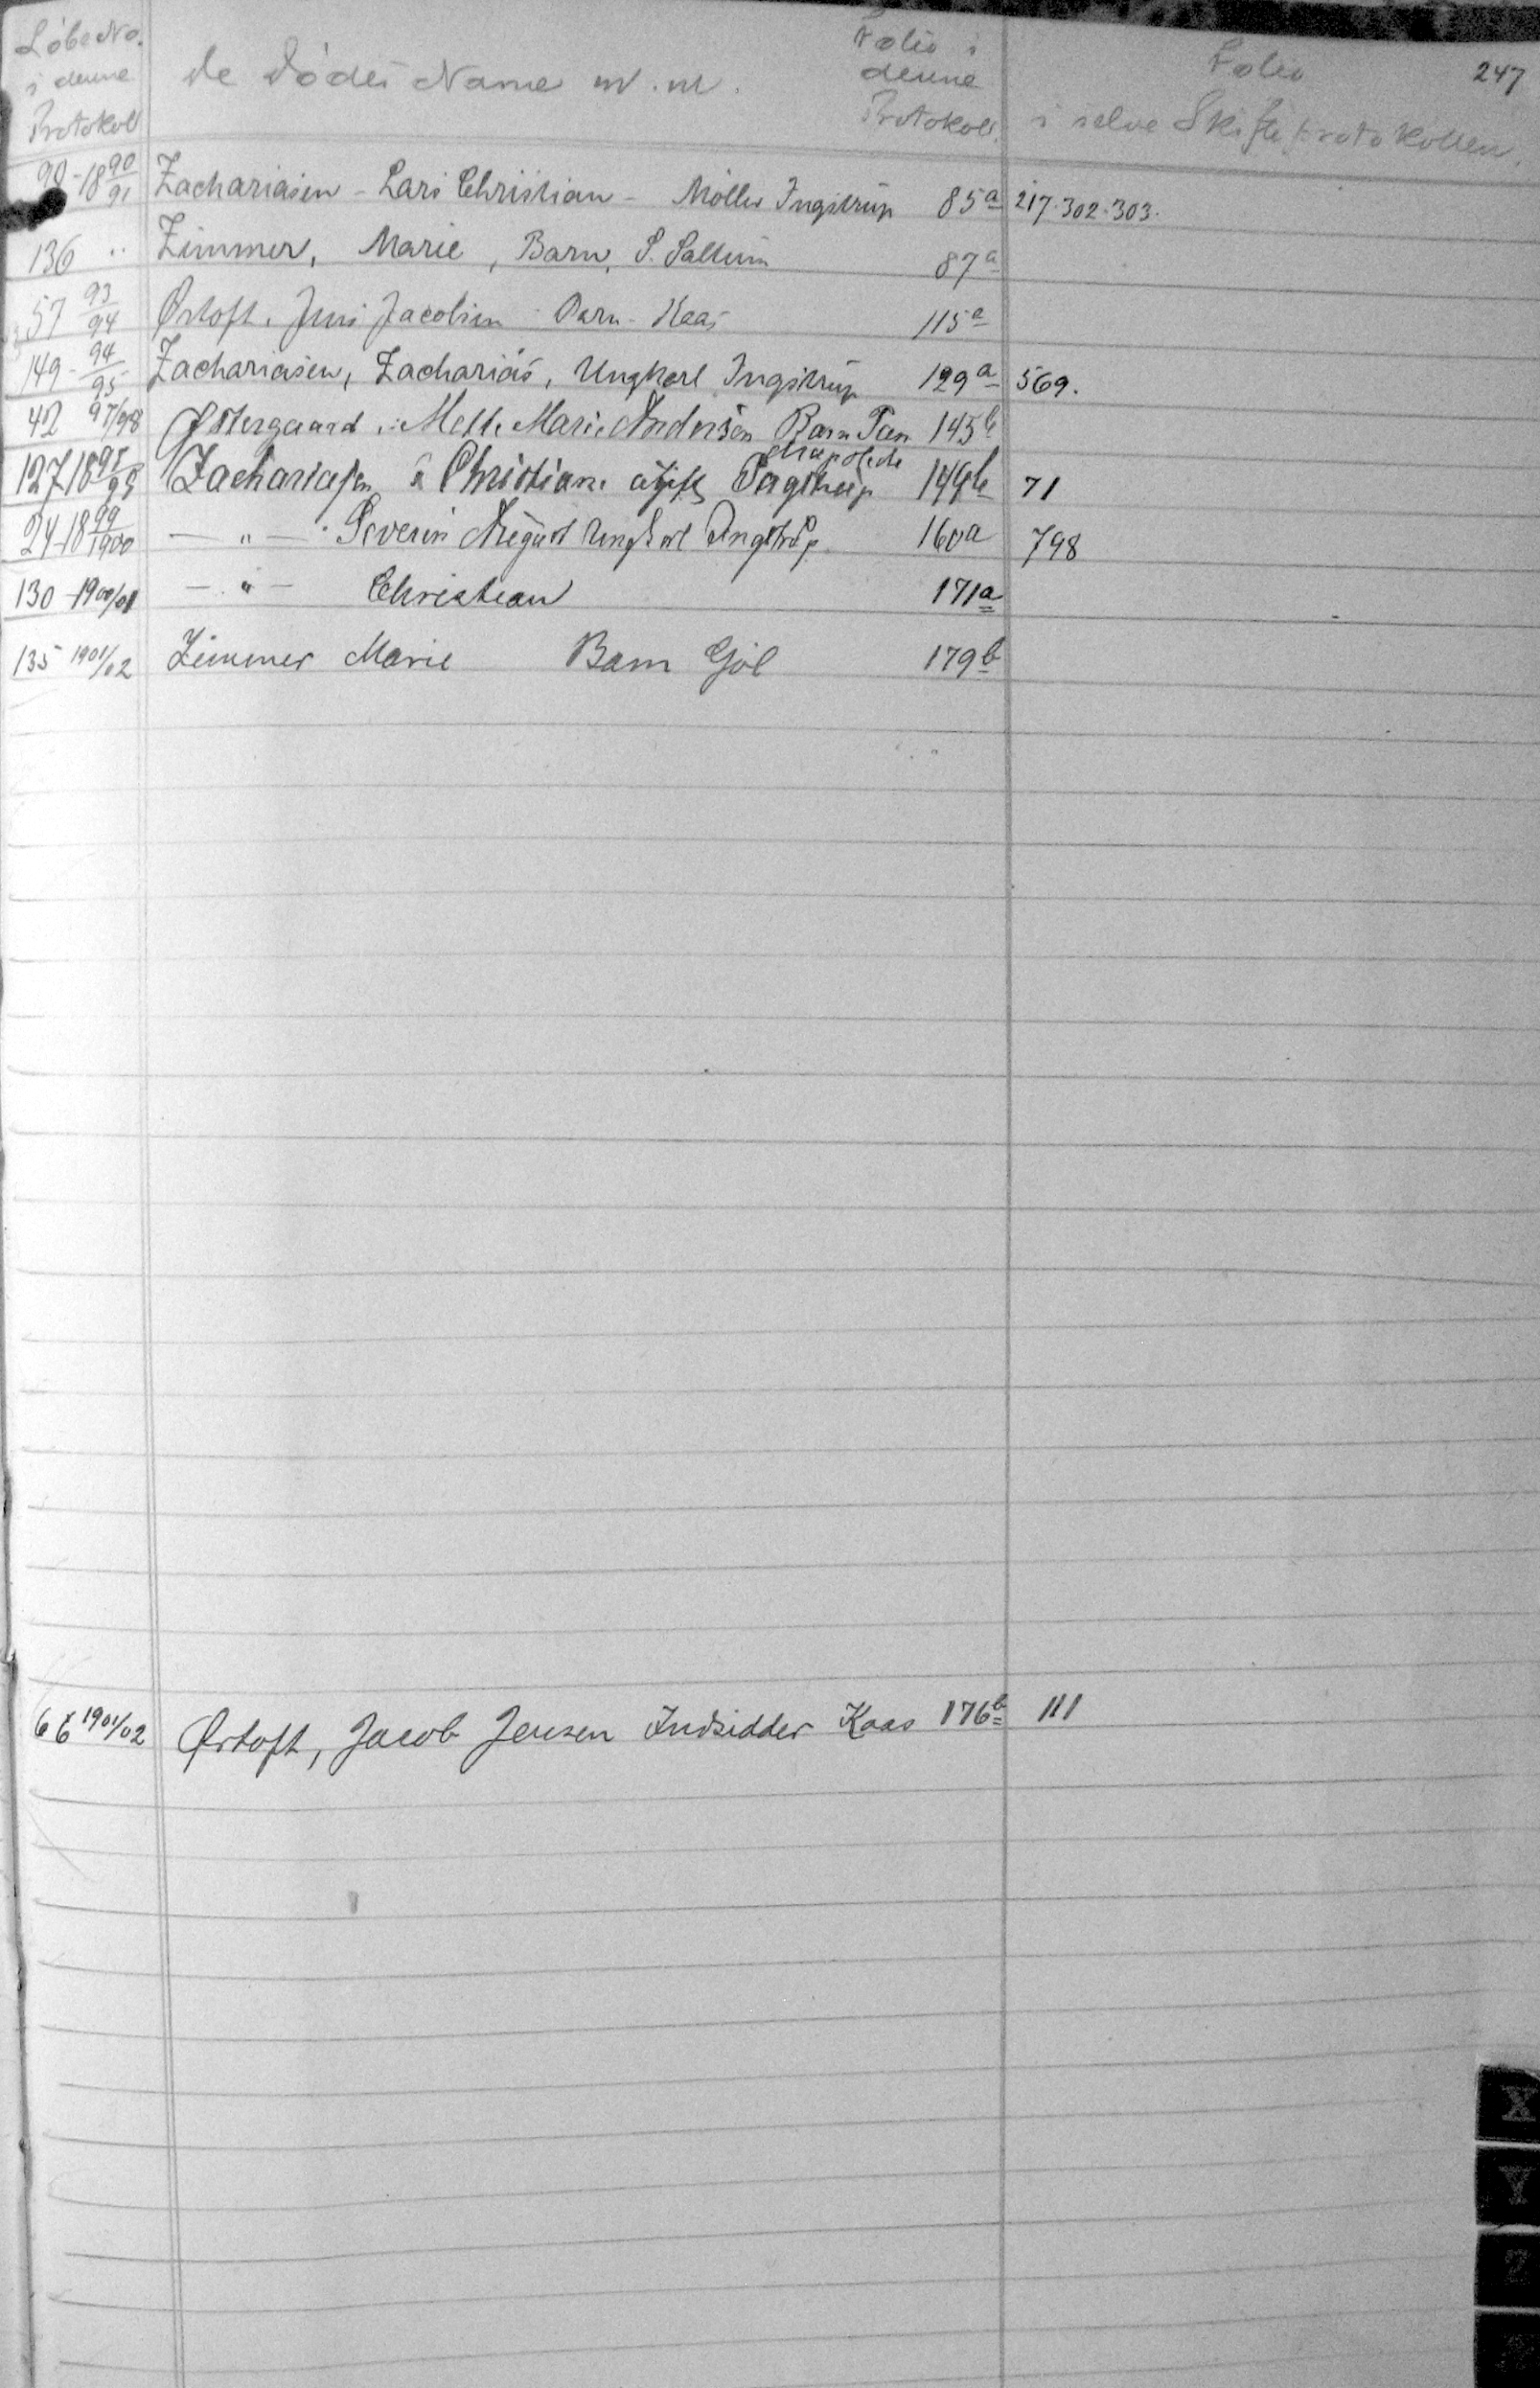 Løbe No. i denne Protokol
De Dødes Navne m.m.
Folio i denne Protokol.
Folio i selve Skifteprotokollen.
247
90-1890/91 Zachariasen - Lars Christian - Møller Ingstrup 85a 217.302.303.
136 " Zimmer, Marie, Barn, S. Saltum 87a
57 93/94 Ørtoft. Jens Jacobsen Barn - Kaas 115a
149-94/95 Zachariasen, Zacharias, Ungkarl Ingstrup 129a 569.
42 97/98 Østergaard, Mette Marie Andersen Barn 145b
127 1897/98 Zachariasen Christiane 149b 71
24-1899/1900 — " — Severin August Ungkarl Ingstrup 160a 798
130-1900/01 — " — Christian 171a
135 1901/02 Zimmer Marie Barn Gjøl 179b
66 1901/02 Ørtoft, Jacob Jensen Indsidder Kaas 176b 111
X
Y
Z